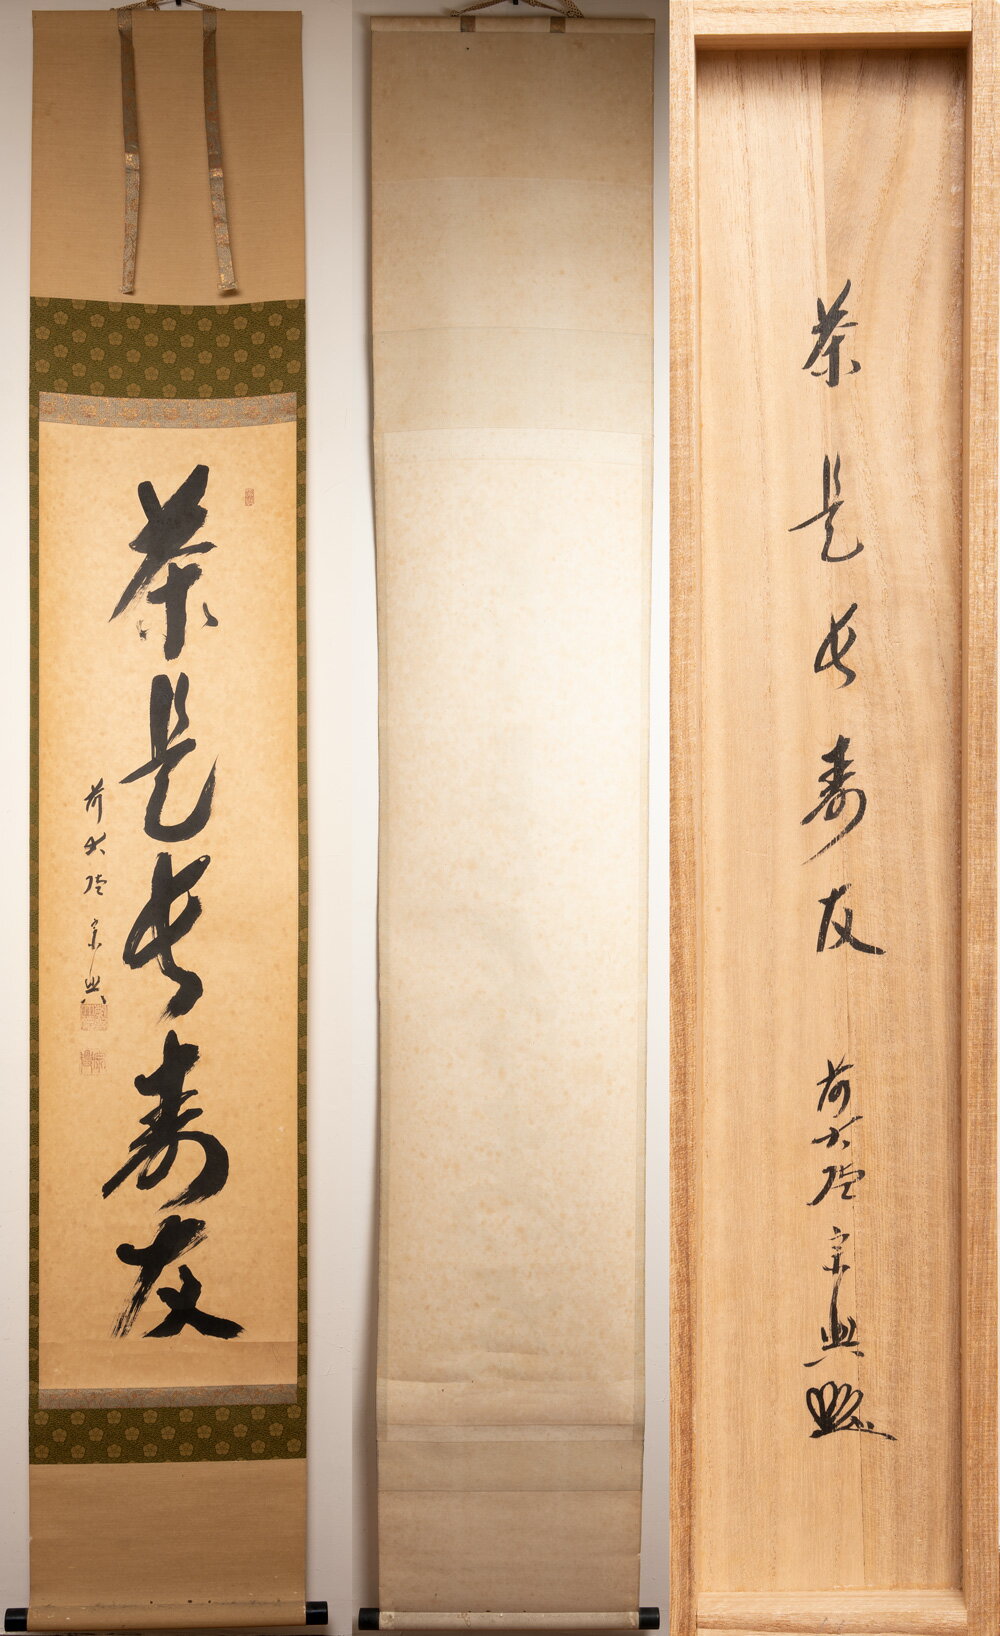 茶是長壽友
前大徳宗典
茶是長壽友 前大徳宗典